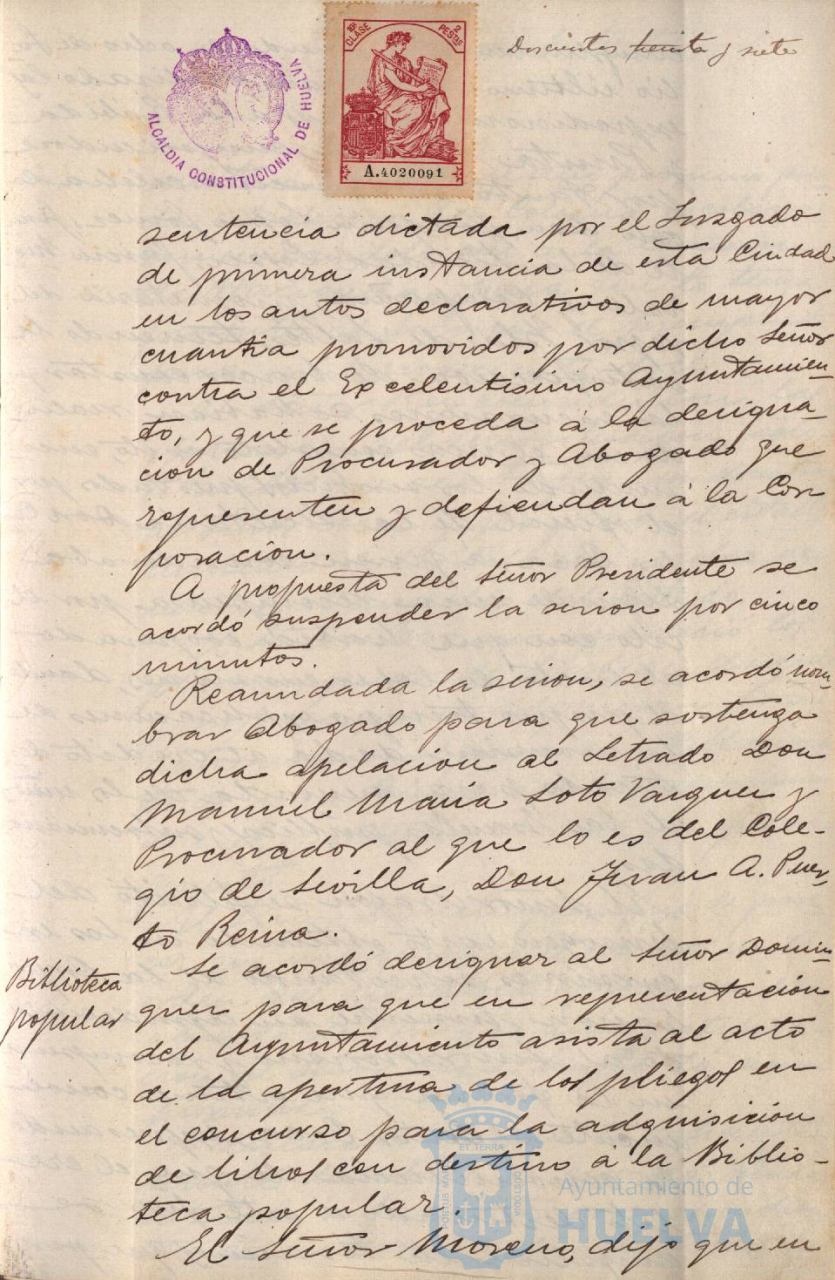 ALCALDIA CONSTITUCIONAL DE HUELVA
10ª CLASE
2 PESETAS
A.4020091
Doscientos treinta y siete
sentencia dictada por el Juzgado
de primera instancia de esta Ciudad
en los autos declarativos de mayor
cuantia promovidos por dicho Señor
contra el Excelentisimo Ayuntamien-
to, y que se proceda á la designa-
cion de Procurador y Abogado que
representen y defiendan á la Cor-
poracion.
A propuesta del Señor Presidente se
acordó suspender la sesion por cinco
minutos.
Reanudada la sesion, se acordó nom-
brar Abogado para que sostenga
dicha apelacion al Letrado Don
Manuel Maria Soto Vazquez y
Procurador al que lo es del Cole-
gio de Sevilla, Don Juan A. Puer-
to Reina.
Biblioteca
popular
Se acordó designar al Señor Domin-
guez para que en representación
del Ayuntamiento asista al acto
de la apertura de los pliegos en
el concurso para la adquisición
de libros con destino á la Biblio-
teca popular.
El Señor Moreno, dijo que en
Ayuntamiento de
HUELVA